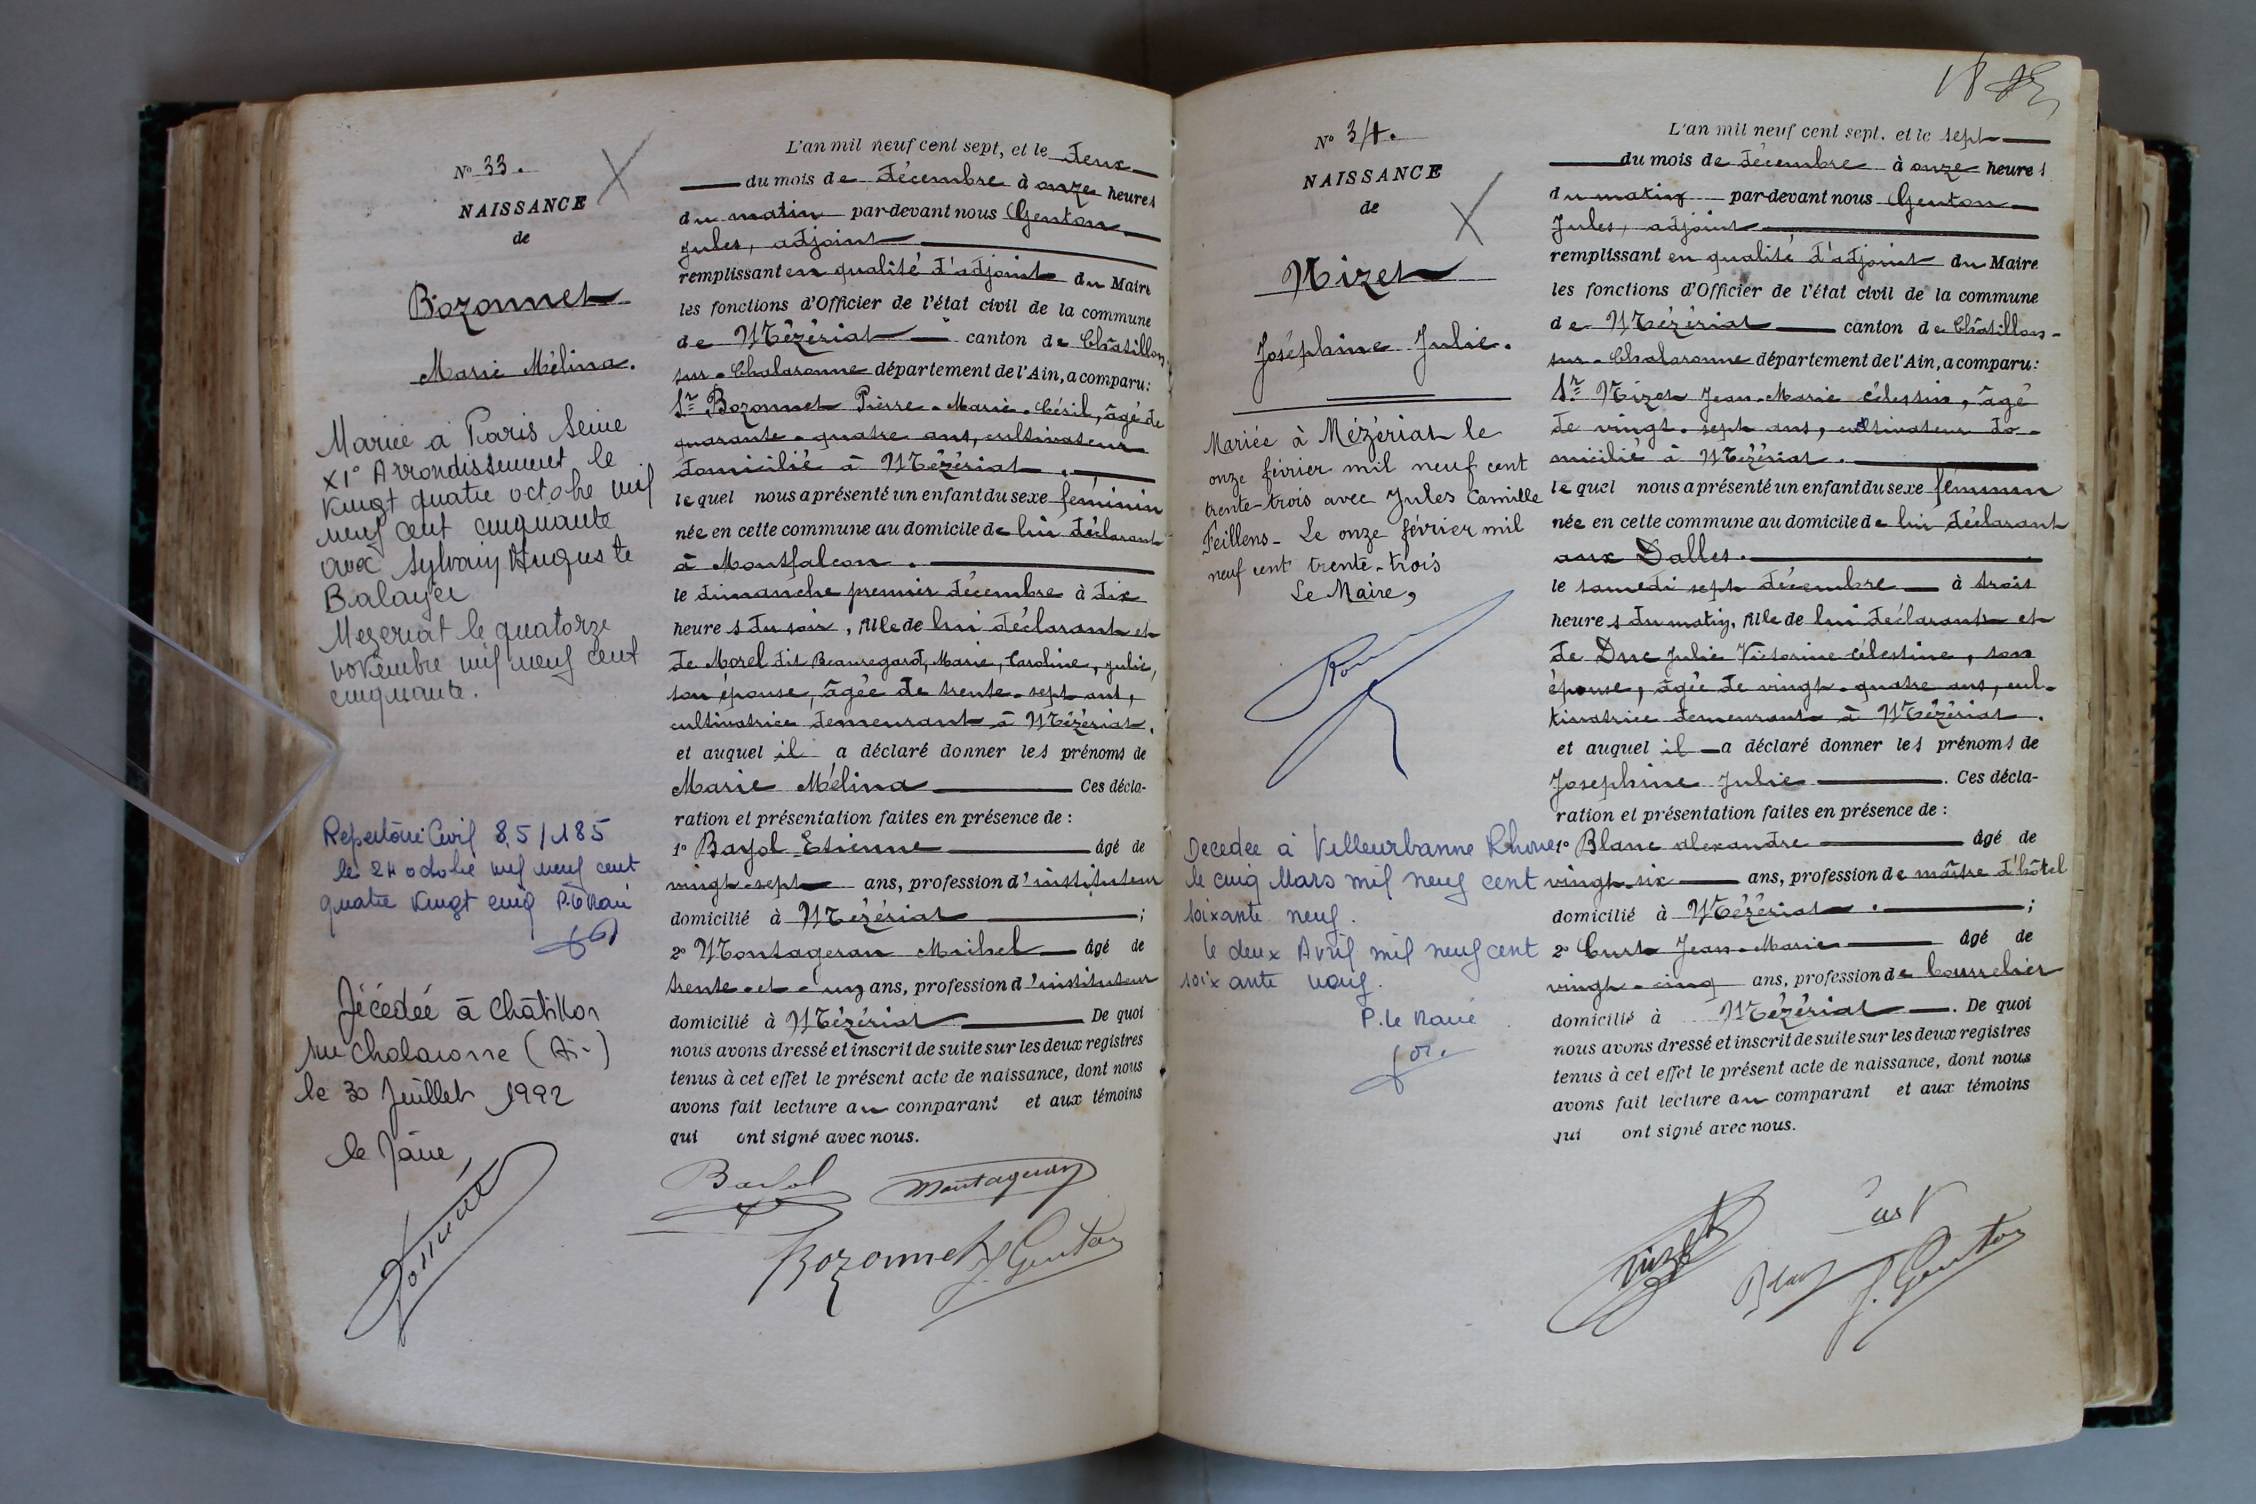 Nº 33.
NAISSANCE
de
Bozonnet
Marie Mélina.
Mariée à Paris Seine
XIº Arrondissement le
vingt quatre octobre mil
neuf cent cinquante
avec Sylvain Auguste
Balayer
Mezeriat le quatorze
novembre mil neuf cent
cinquante.
Répertoire Civil 85/185
le 24 octobre mil neuf cent
quatre vingt cinq P. le Maire
Décédée à Châtillon
sur Chalaronne (Ain)
le 30 Juillet 1992
le Maire,
L'an mil neuf cent sept, et le deux
du mois de décembre à onze heures
du matin par-devant nous Genton
Jules, adjoint
remplissant en qualité d'adjoint du Maire
les fonctions d'Officier de l'état civil de la commune
de Mézériat canton de Châtillon-
sur-Chalaronne département de l'Ain, a comparu:
Sr Bozonnet Pierre-Marie-Césil, âgé de
quarante-quatre ans, cultivateur
domicilié à Mézériat.
lequel nous a présenté un enfant du sexe féminin
née en cette commune au domicile de lui déclarant
à Montfalcon.
le dimanche premier décembre à dix
heures du soir, fille de lui déclarant et
de Morel dit Beauregard, Marie, Caroline, Julie,
son épouse, âgée de trente-sept ans,
cultivatrice demeurant à Mézériat.
et auquel il a déclaré donner les prénoms de
Marie Mélina Ces décla-
ration et présentation faites en présence de :
1º Bayol Etienne âgé de
vingt-sept ans, profession d'instituteur
domicilié à Mézériat ;
2º Montageran Michel âgé de
trente-et-un ans, profession d'instituteur
domicilié à Mézériat De quoi
nous avons dressé et inscrit de suite sur les deux registres
tenus à cet effet le présent acte de naissance, dont nous
avons fait lecture au comparant et aux témoins
qui ont signé avec nous.
Bayol Montageran
Bozonnet J. Genton
Nº 34.
NAISSANCE
de
Nizet
Joséphine Julie.
Mariée à Mézériat le
onze février mil neuf cent
trente-trois avec Jules Camille
Feillens- Le onze février mil
neuf cent trente-trois
Le Maire,
Decedee à Villeurbanne Rhone
le cinq Mars mil neuf cent
soixante neuf.
le deux Avril mil neuf cent
soixante neuf.
P. le Maire
L'an mil neuf cent sept, et le sept
du mois de décembre à onze heures
du matin par-devant nous Genton
Jules, adjoint
remplissant en qualité d'adjoint du Maire
les fonctions d'Officier de l'état civil de la commune
de Mézériat canton de Châtillon-
sur-Chalaronne département de l'Ain, a comparu:
Sr Nizet Jean-Marie Célestin, âgé
de vingt-sept ans, cultivateur do-
micilié à Mézériat.
lequel nous a présenté un enfant du sexe féminin
née en cette commune au domicile de lui déclarant
aux Dalles.
le samedi sept décembre à trois
heures du matin, fille de lui déclarant et
de Duc Julie Victorine Célestine, son
épouse, âgée de vingt-quatre ans, cul-
tivatrice demeurant à Mézériat.
et auquel il a déclaré donner les prénoms de
Josephine Julie. Ces décla-
ration et présentation faites en présence de :
1º Blanc alexandre âgé de
vingt-six ans, profession de maître d'hôtel
domicilié à Mézériat. ;
2º Curt Jean-Marie âgé de
vingt-cinq ans, profession de bourrelier
domicilié à Mézériat. De quoi
nous avons dressé et inscrit de suite sur les deux registres
tenus à cet effet le présent acte de naissance, dont nous
avons fait lecture au comparant et aux témoins
qui ont signé avec nous.
Nizet Blanc Curt
J. Genton